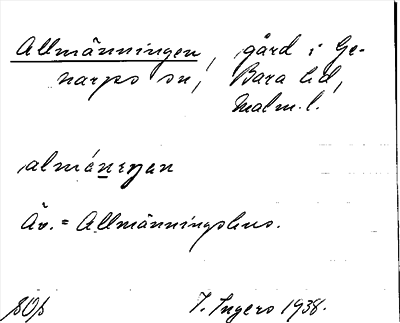 Allmänningen, gård i Ge-
narps sn, Bara hd,
Malm. l.
almäneŋan
Äv. = Allmänningshus.
I. Ingers 1938.